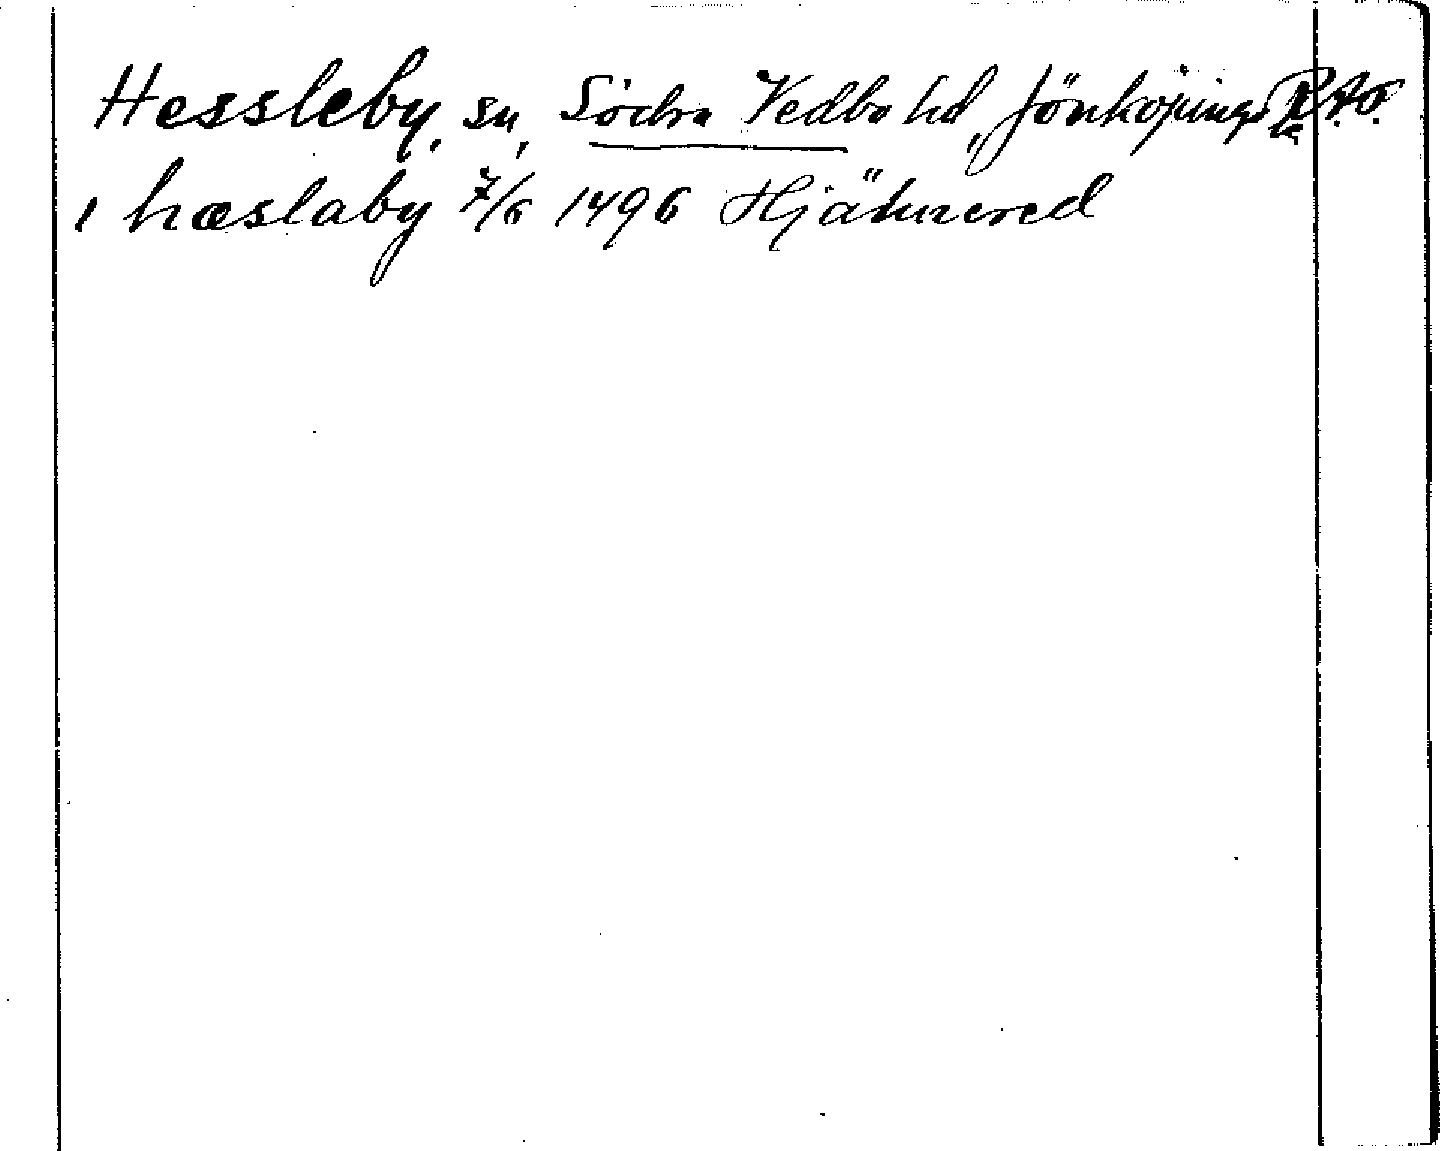 Hessleby, sn, Södra Vedbo hd, Jönköpings R.A.O.
i hæslaby 7/6 1496 Hjätmered